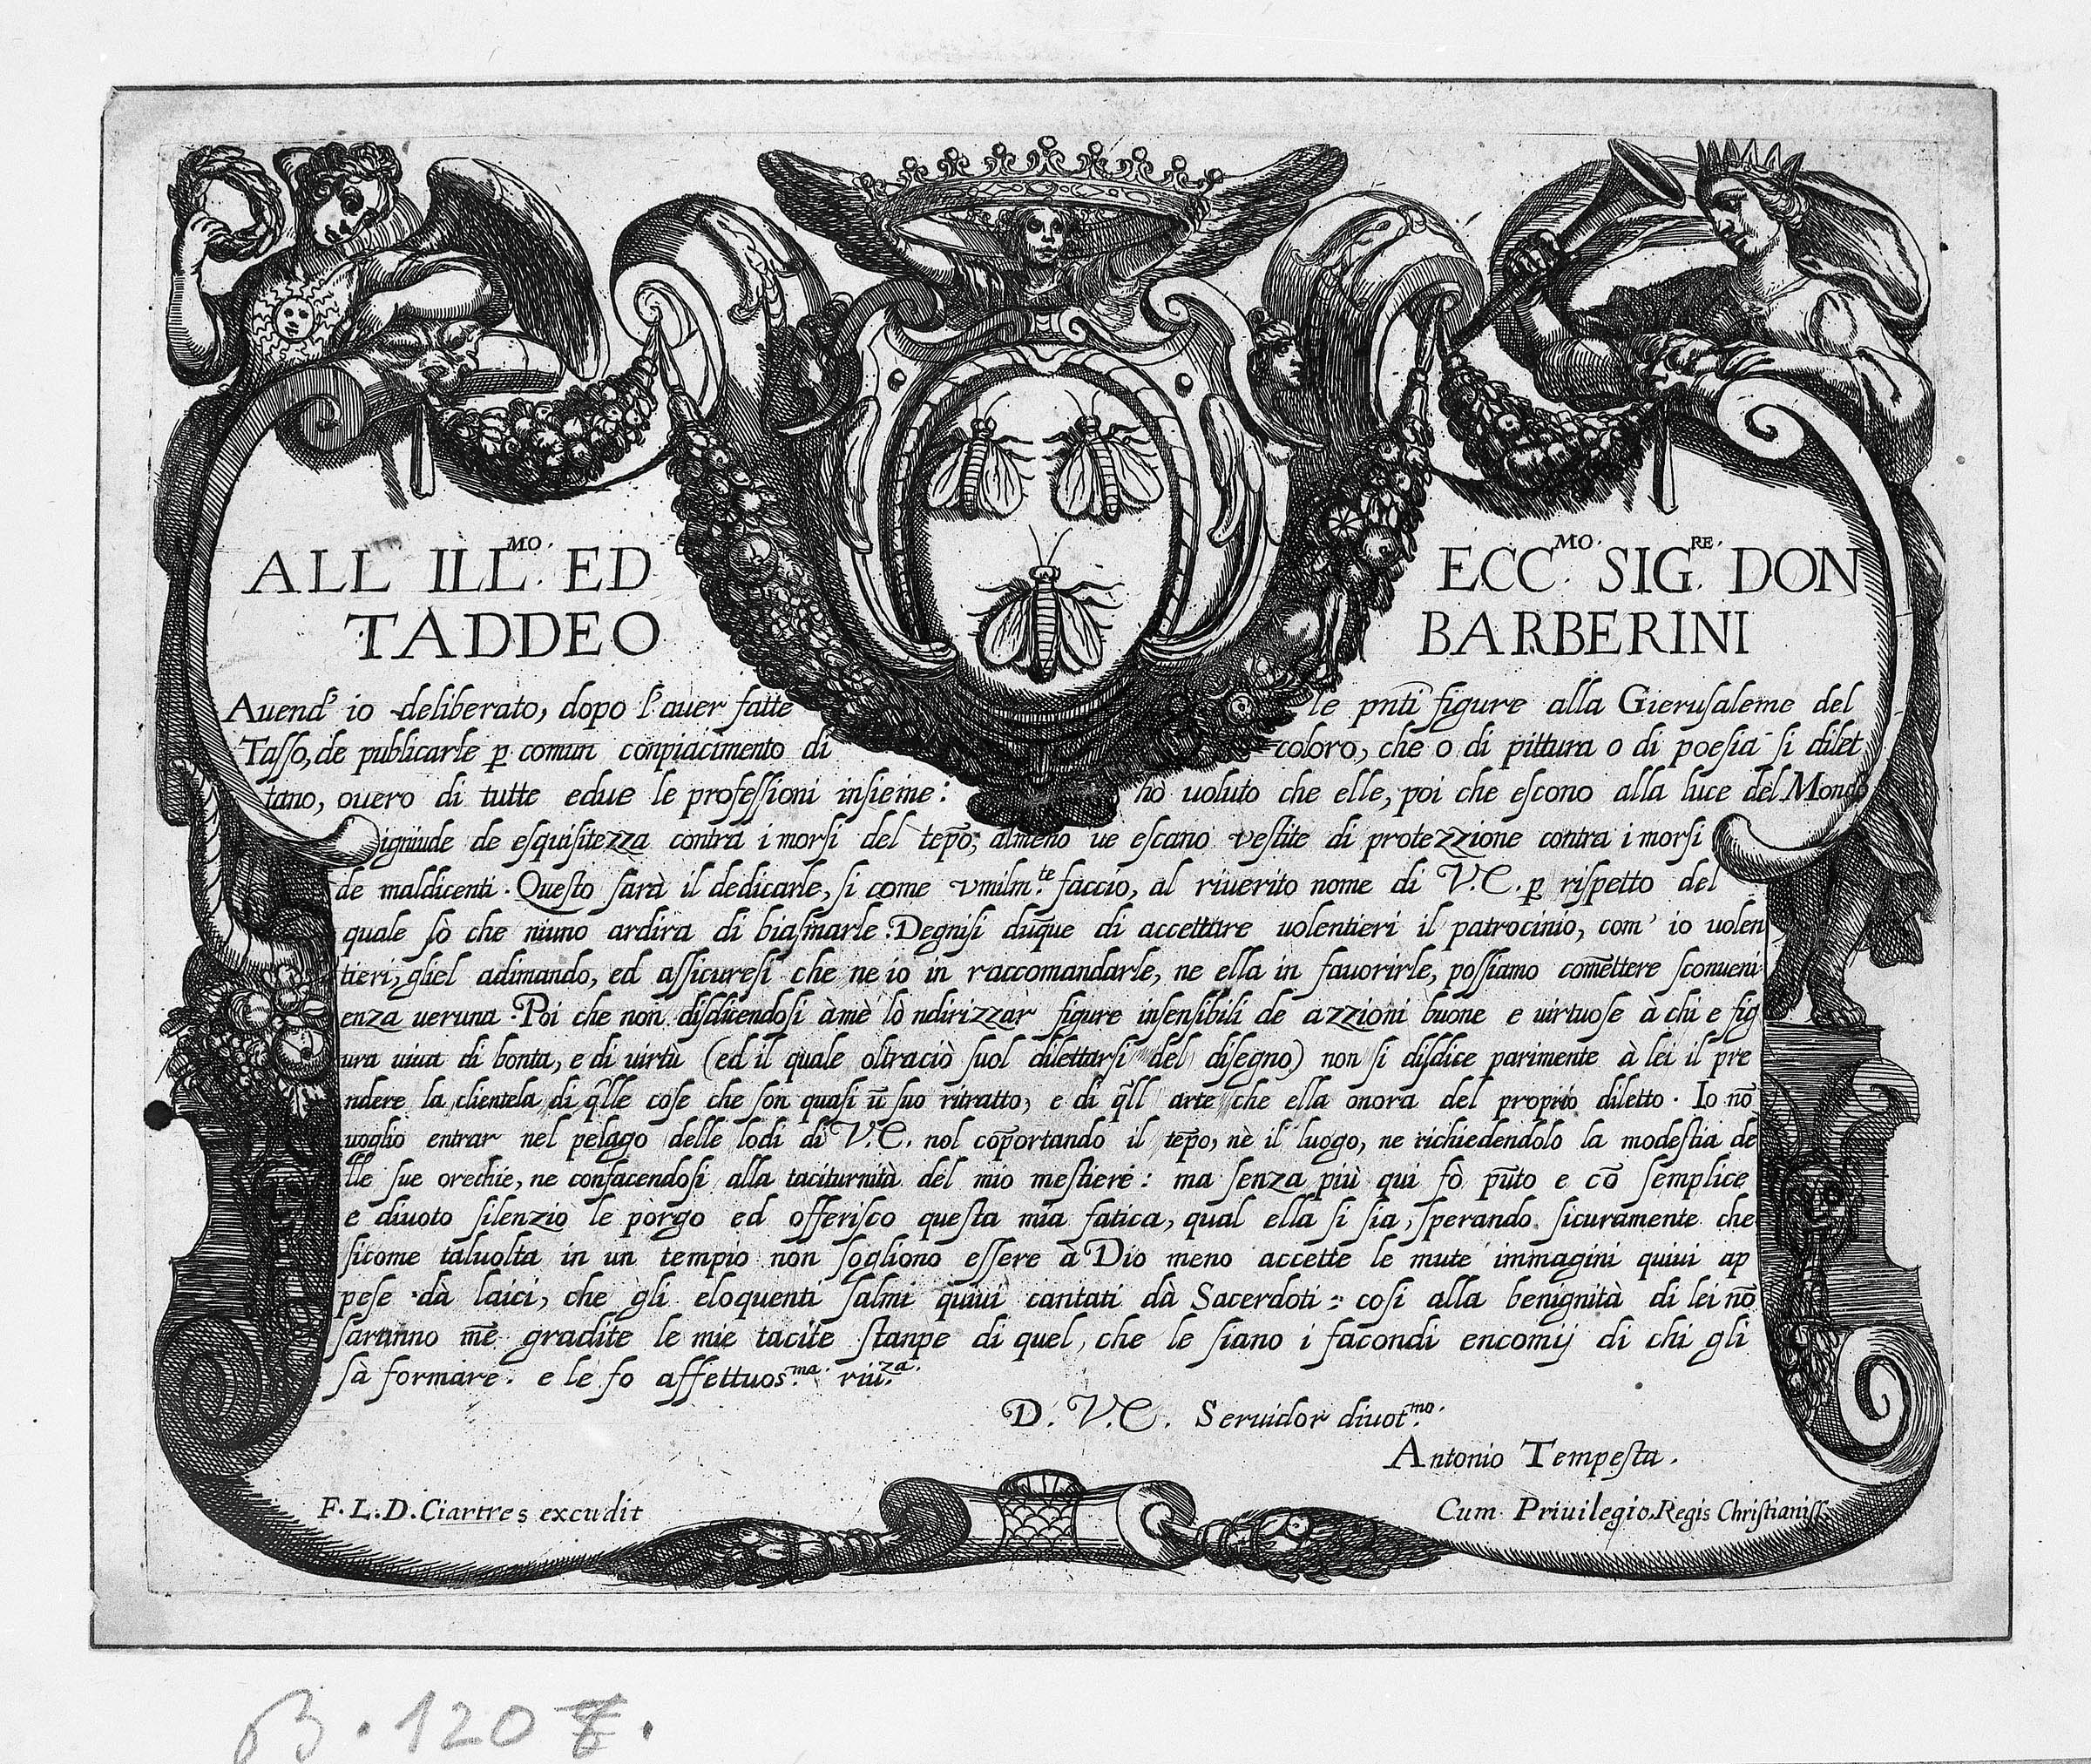 ALL ILL.MO ED ECC.MO SIG.RE DON
TADDEO BARBERINI
Auend' io deliberato, dopo l'auer fatte le pnti figure alla Gieruſaleme del
Taſſo, de publicarle p comun conpiacimento di coloro, che o di pittura o di poesia si dilet
tano, ouero di tutte edue le profeſſioni inſieme: hò uoluto che elle, poi che eſcono alla luce del Mondo
igniude de eſquiſitezza contra i morſi del tepō, almeno ue eſcano veſtite di protezzione contra i morſi
de maldicenti. Queſto ſarà il dedicarle, ſi come vmilm.te faccio, al riuerito nome di V.E. p riſpetto del
quale ſò che niuno ardirà di biaſmarle. Degniſi duque di accettare uolentieri il patrocinio, com' io uolen
tieri, gliel adimando, ed aſſicureſi che ne io in raccomandarle, ne ella in fauorirle, poſſiamo comettere ſconueni
enza ueruna. Poi che non diſdicendoſi à mè lò ndirizzar figure inſenſibili de azzioni buone e uirtuoſe à chi e fig
ura uiua di bonta, e di uirtù (ed il quale oltraciò ſuol dilettarſi del diſegno) non ſi diſdice parimente à lei il pre
ndere la clientela di q̄lle coſe che ſon quaſi ū ſuo ritratto, e di q̄ll arte che ella onora del proprio diletto. Io nō
uoglio entrar nel pelago delle lodi di V.E. nol cōportando il tepō, nè il luogo, ne richiedendolo la modeſtia de
lle ſue orechie, ne confacendoſi alla taciturnità del mio meſtiere: ma ſenza più qui fò pūto e cō ſemplice
e diuoto ſilenzio le porgo ed offeriſco queſta mia fatica, qual ella ſi ſia, ſperando ſicuramente che
ſicome taluolta in un tempio non ſogliono eſſere à Dio meno accette le mute immagini quiui ap
peſe dà laici, che gli eloquenti ſalmi quiui cantati dà Sacerdoti: coſi alla benignità di lei nō
ſaranno mē gradite le mie tacite ſtanpe di quel, che le ſiano i facondi encomij di chi gli
ſà formare. e le fo affettuos.ma riu.za
D. V.E. Seruidor diuot.mo
Antonio Tempeſta.
F. L. D. Ciartres excudit Cum Priuilegio Regis Chriſtianiſſ.
B. 1207.